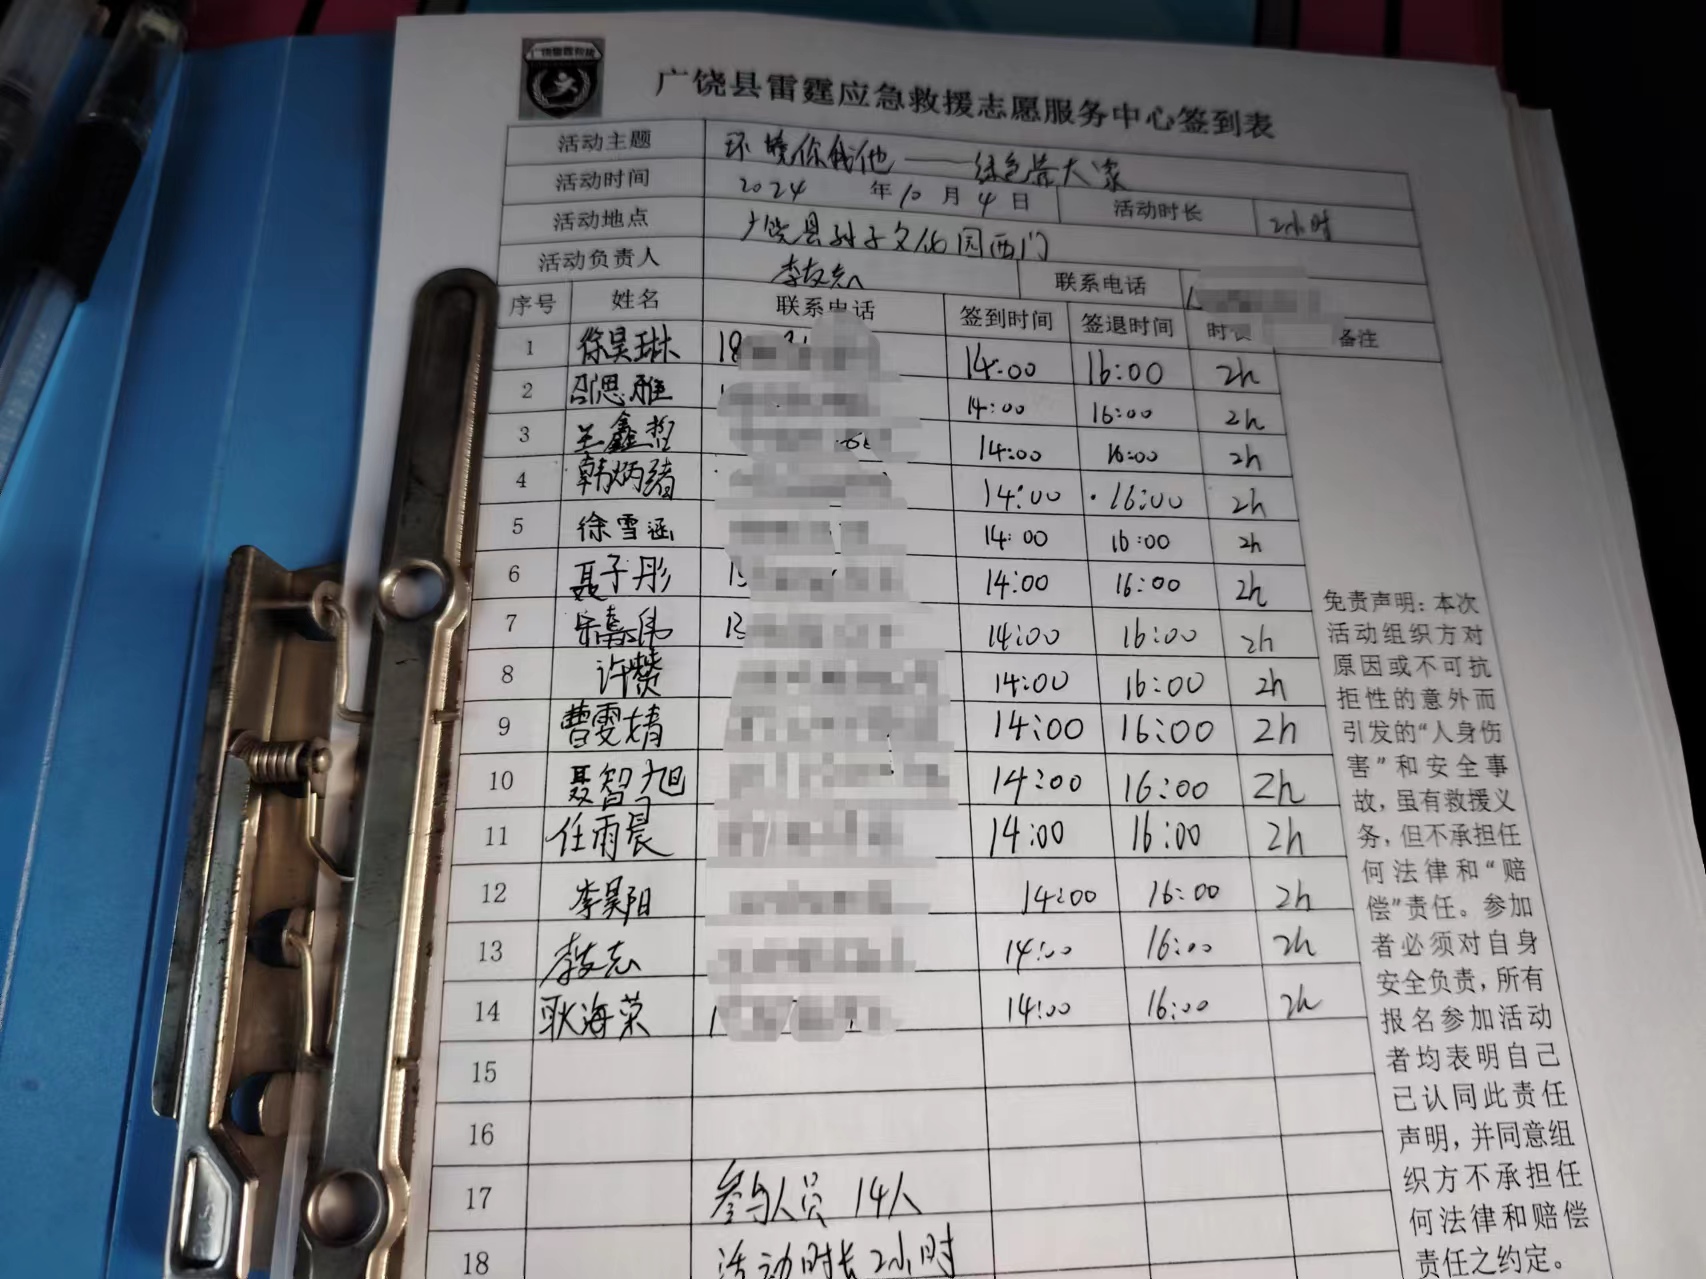 广饶县雷霆应急救援志愿服务中心签到表
活动主题 环境你我他——绿色靠大家
活动时间 2024 年 10 月 4 日 活动时长 2小时
活动地点 广饶县孙子文化园西门
活动负责人 李友志 联系电话
序号 姓名 联系电话 签到时间 签退时间 备注
1 徐昊琳 18 14:00 16:00 2h
2 吕思雅 14:00 16:00 2h
3 王鑫哲 14:00 16:00 2h
4 韩炳绪 14:00 16:00 2h
5 徐雪涵 14:00 16:00 2h
6 聂子彤 14:00 16:00 2h
7 宋嘉伟 13 14:00 16:00 2h
8 许赞 14:00 16:00 2h
9 曹雯婧 14:00 16:00 2h
10 聂智旭 14:00 16:00 2h
11 任雨晨 14:00 16:00 2h
12 李昊阳 14:00 16:00 2h
13 李友志 14:00 16:00 2h
14 耿海荣 1 14:00 16:00 2h
15
16
17 参与人员 14人
18 活动时长2小时
免责声明：本次
活动组织方对
原因或不可抗
拒性的意外而
引发的“人身伤
害”和安全事
故，虽有救援义
务，但不承担任
何法律和“赔
偿”责任。参加
者必须对自身
安全负责，所有
报名参加活动
者均表明自己
已认同此责任
声明，并同意组
织方不承担任
何法律和赔偿
责任之约定。